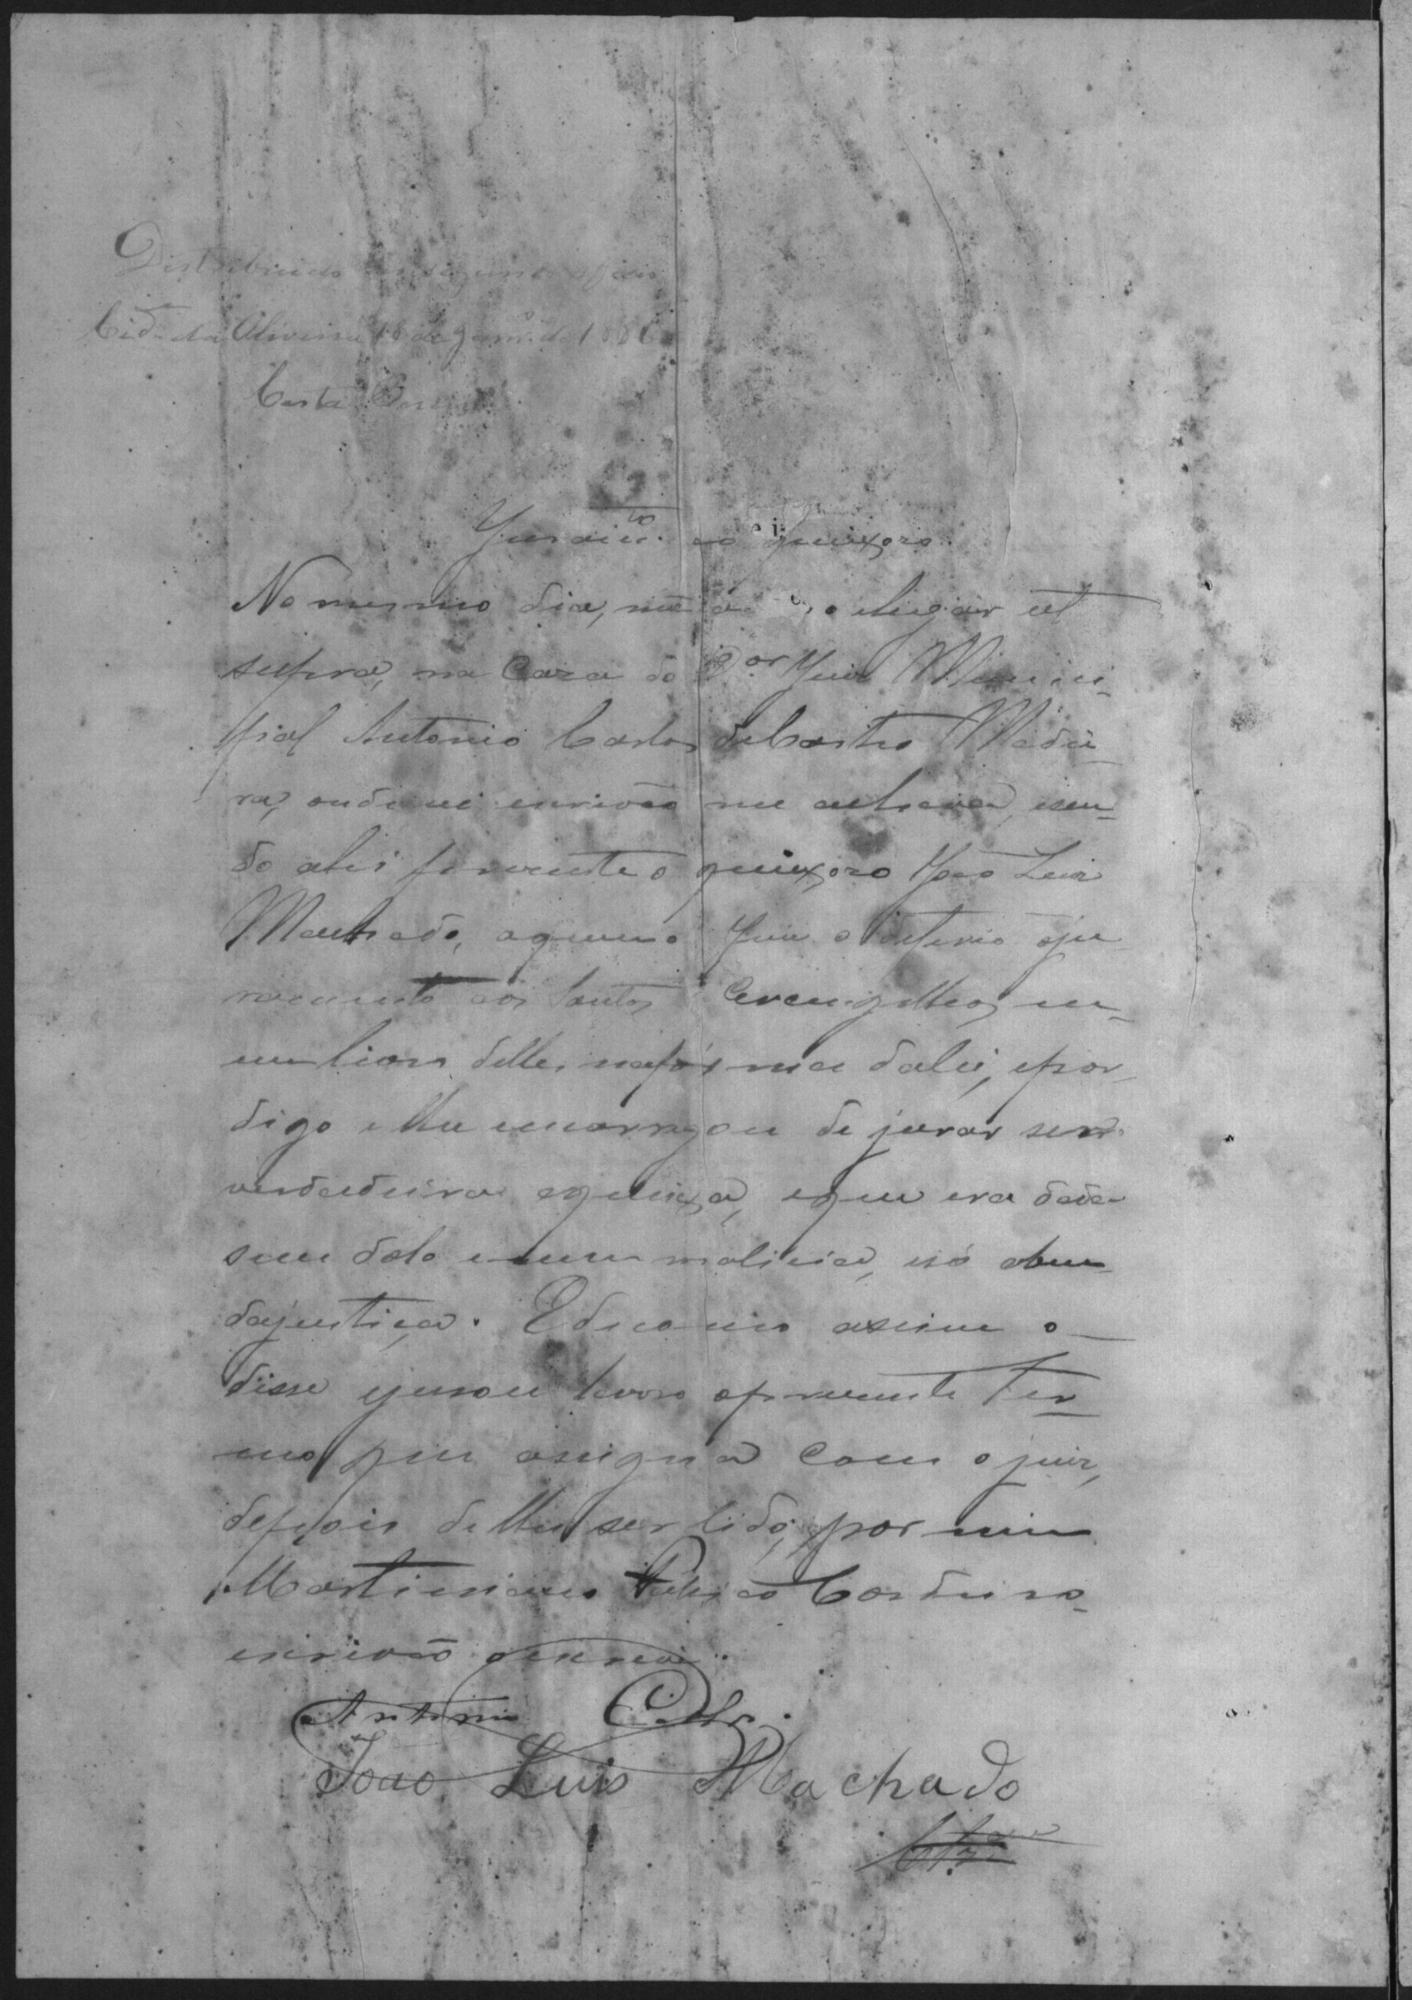 Distribuido ao segundo officio
Cid.e da Oliveira 18 de Janr.o de 1886
Costa
Juram.to ao queixozo
No mesmo dia, mez, e lugar ut
supra, na Caza do D.or Juiz Munici-
pial Antonio Carlos de Castro Madei-
ra, onde eu escrivão me achava, e sen-
do ahi prezente o queixozo João Luiz
Machado, a quem o Juiz deferio o ju
ramento aos Santos Evangelhos em
um livro delles na fórma da lei, e por
digo e lhe encarregou de jurar ser
verdadeira a queixa, e que era dada
sem dolo e nem malicia, e só a bem
da justiça. E de como assim o
disse e jurou lavro o prezente ter-
mo que assigna com o juiz,
depois de lhe ser lido, por mim
Martiniano Cordeiro
escrivão o escrevi.
Antonio Castro
João Luis Machado